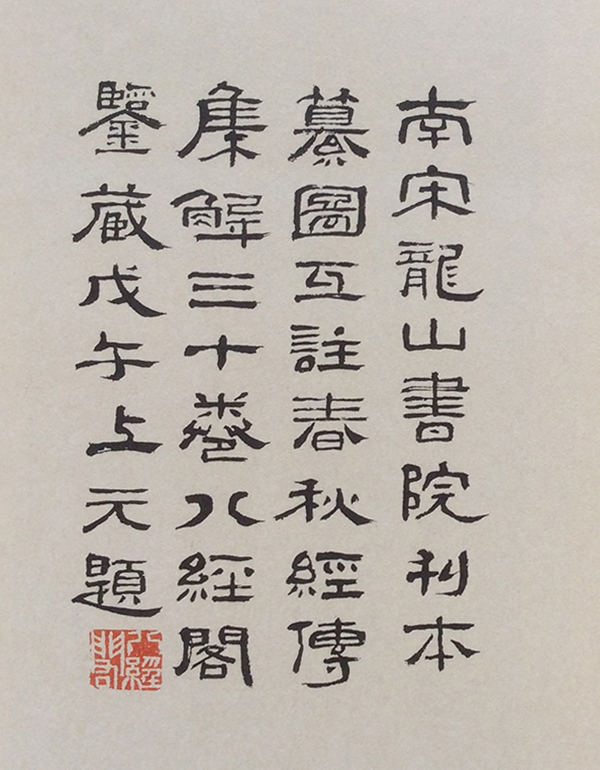 南宋龍山書院刊本
纂圖互註春秋經傳
集解三十卷八經閣
鑒藏戊午上元題
八經閣